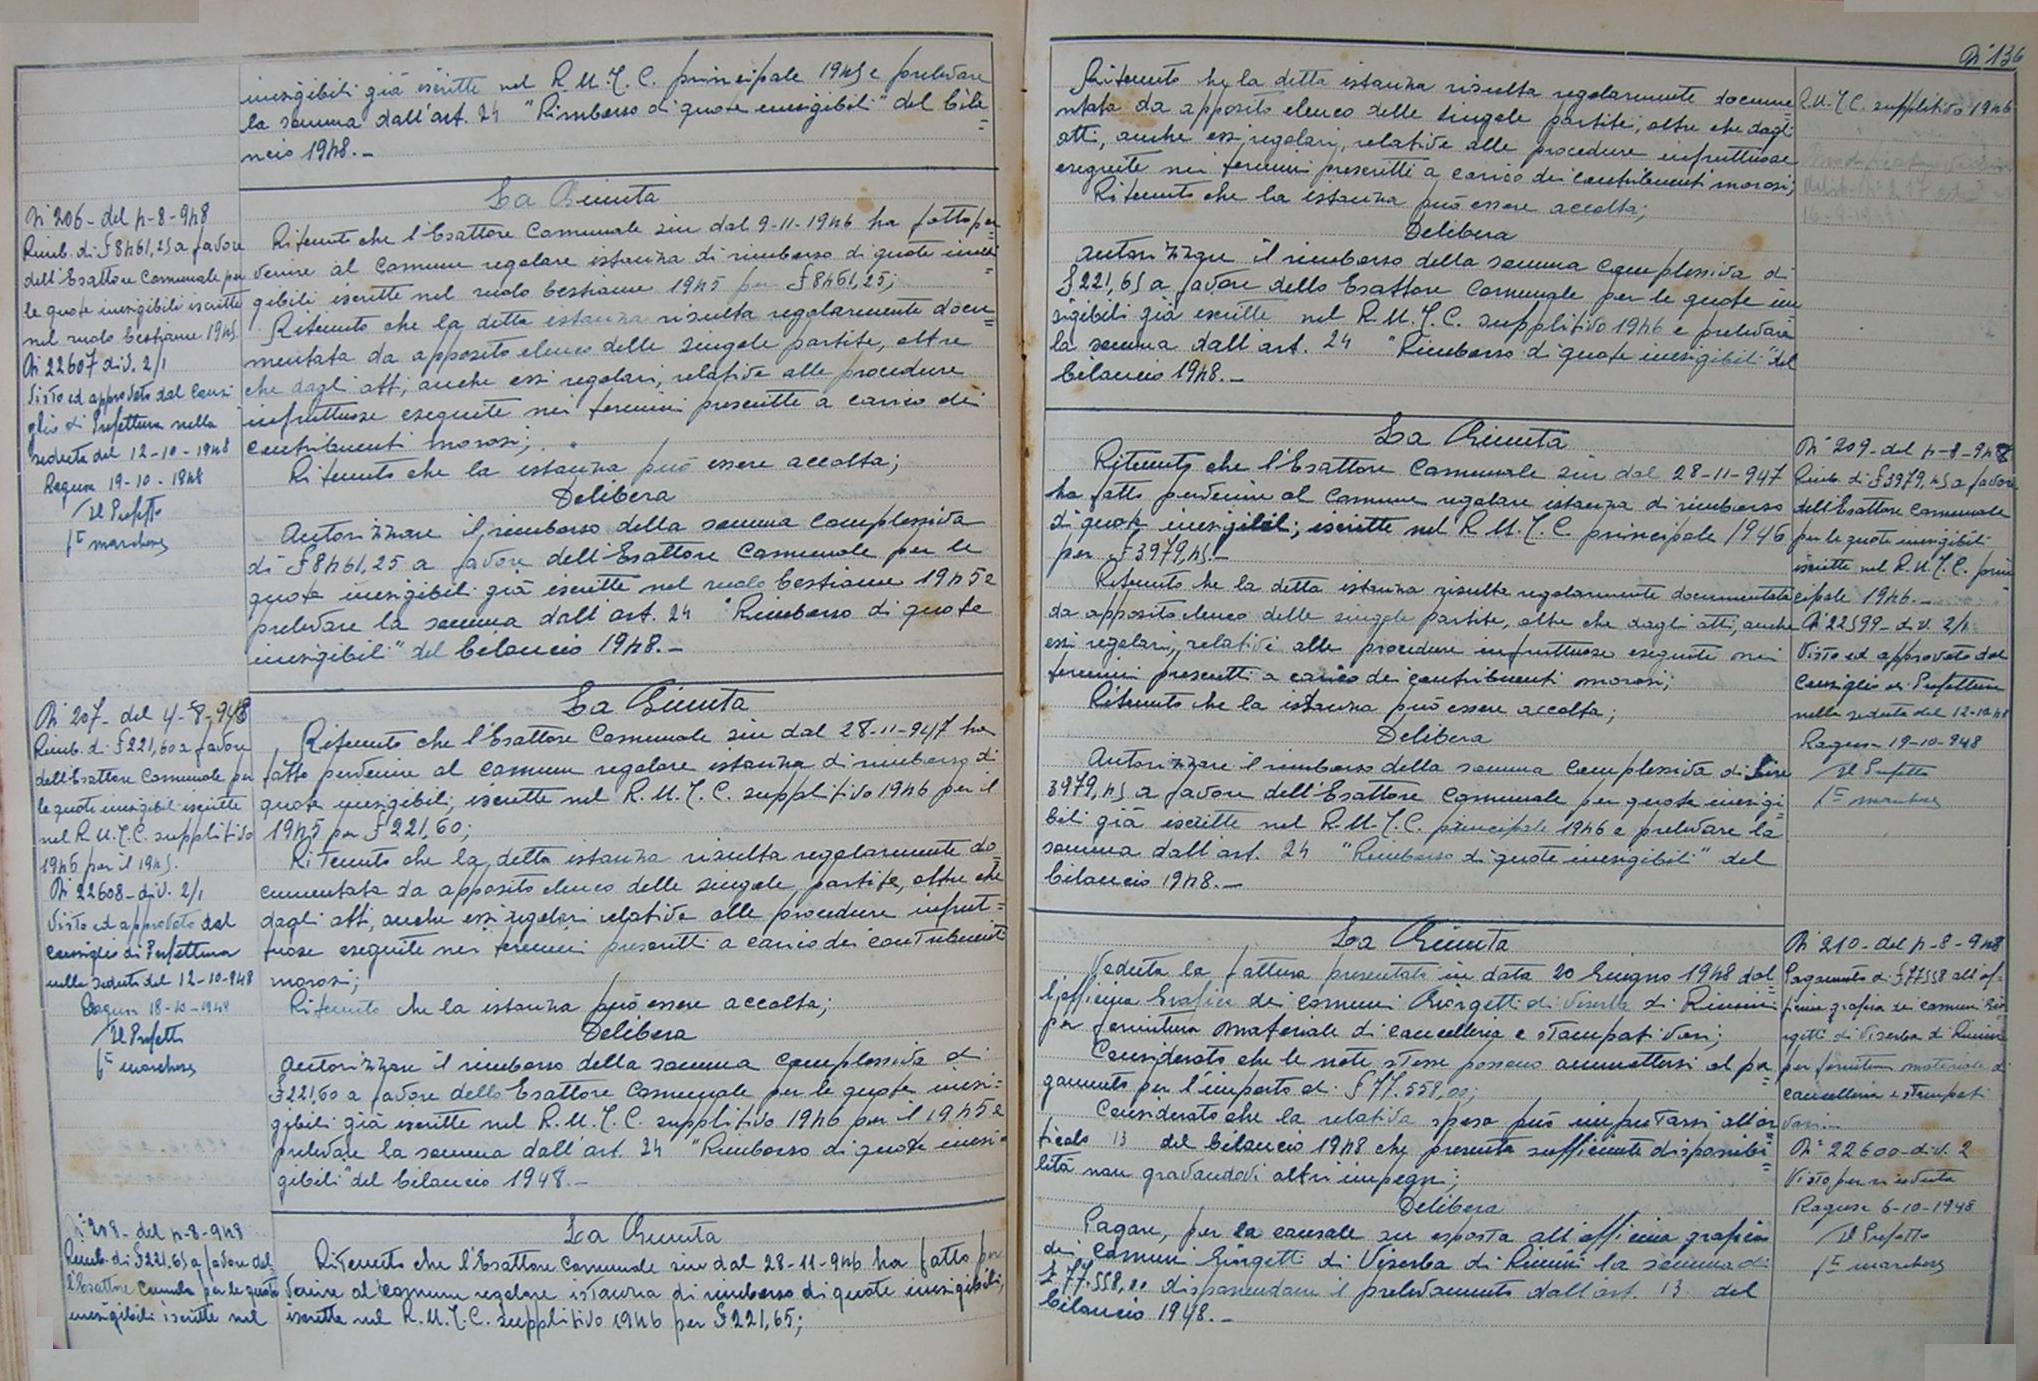 inesigibili già iscritte nel R.M.J.C. principale 1945 e prelevare
la somma dall'art. 24 "Rimborso di quote inesigibili" del bila=
ncio 1948.-
N° 206 - del 4-8-948
Rimb. di £8461,25 a favore
dell'Esattore Comunale per
le quote inesigibili iscritte
nel ruolo bestiame 1945.
N° 22607 div. 2/1
Visto ed approvato dal Consi
glio di Prefettura nella
seduta del 12-10-1948
Ragusa 19-10-1948
Il Prefetto
La Giunta
Ritenuto che l'Esattore Comunale sin dal 9-11-1946 ha fatto per=
venire al Comune regolare istanza di rimborso di quote inesi=
gibili iscritte nel ruolo bestiame 1945 per £8461,25;
Ritenuto che la detta istanza risulta regolarmente docu=
mentata da apposito elenco delle singole partite, oltre
che dagli atti, anche essi regolari, relativi alle procedure
infruttuose eseguite nei termini prescritti a carico dei
contribuenti morosi;
Ritenuto che la istanza può essere accolta;
Delibera
Autorizzare il rimborso della somma complessiva
di £8461,25 a favore dell'Esattore Comunale per le
quote inesigibili già iscritte nel ruolo bestiame 1945 e
prelevare la somma dall'art. 24 "Rimborso di quote
inesigibili" del bilancio 1948.-
N° 207 - del 4-8-948
Rimb. di £221,60 a favore
dell'Esattore Comunale per
le quote inesigibili iscritte
nel R.M.J.C. suppletivo
1946 per il 1945.
N° 22608 - div. 2/1
Visto ed approvato dal
Consiglio di Prefettura
nella seduta del 12-10-948
Ragusa 18-10-1948
Il Prefetto
La Giunta
Ritenuto che l'Esattore Comunale sin dal 28-11-947 ha
fatto pervenire al Comune regolare istanza di rimborso di
quote inesigibili, iscritte nel R.M.J.C. suppletivo 1946 per il
1945 per £221,60;
Ritenuto che la detta istanza risulta regolarmente do
cumentata da apposito elenco delle singole partite, oltre che
dagli atti, anche essi regolari relativi alle procedure infrut=
tuose eseguite nei termini prescritti a carico dei contribuenti
morosi;
Ritenuto che la istanza può essere accolta;
Delibera
Autorizzare il rimborso della somma complessiva di
£221,60 a favore dello Esattore Comunale per le quote inesi=
gibili già iscritte nel R.M.J.C. suppletivo 1946 per il 1945 e
prelevare la somma dall'art. 24 "Rimborso di quote inesi=
gibili" del bilancio 1948.-
N° 208 - del 4-8-948
Rimb. di £221,65 a favore del=
l'Esattore Comunale per le quote
inesigibili iscritte nel
La Giunta
Ritenuto che l'Esattore Comunale sin dal 28-11-946 ha fatto per
venire al Comune regolare istanza di rimborso di quote inesigibili,
iscritte nel R.M.J.C. suppletivo 1946 per £221,65;
N° 136
Ritenuto che la detta istanza risulta regolarmente docume=
ntata da apposito elenco delle singole partite, oltre che dagli
atti, anche essi regolari, relativi alle procedure infruttuose
eseguite nei termini prescritti a carico dei contribuenti morosi;
Ritenuto che la istanza può essere accolta;
Delibera
Autorizzare il rimborso della somma complessiva di
£221,65 a favore dello Esattore Comunale per le quote ine
sigibili già iscritte nel R.M.J.C. suppletivo 1946 e prelevare
la somma dall'art. 24 "Rimborso di quote inesigibili" del
bilancio 1948.-
R.M.J.C. suppletivo 1946
La Giunta
Ritenuto che l'Esattore Comunale sin dal 28-11-947
ha fatto pervenire al Comune regolare istanza di rimborso
di quote inesigibili; iscritte nel R.M.J.C principale 1946
per £3979,45.-
Ritenuto che la detta istanza risulta regolarmente documentata
da apposito elenco delle singole partite, oltre che dagli atti, anche
essi regolari, relativi alle procedure infruttuose eseguite nei
termini prescritti a carico dei contribuenti morosi;
Ritenuto che la istanza può essere accolta;
Delibera
Autorizzare il rimborso della somma complessiva di Lire
3979,45 a favore dell'Esattore Comunale per quote inesigi=
bili già iscritte nel R.M.J.C. principale 1946 e prelevare la
somma dall'art. 24 "Rimborso di quote inesigibili" del
bilancio 1948.-
N° 209 - del 4-8-948
Rimb. di £3979,45 a favore
dell'Esattore Comunale
per le quote inesigibili
iscritte nel R.M.J.C. prin
cipale 1946.-
N° 22599 - div. 2/1
Visto ed approvato dal
Consiglio di Prefettura
nella seduta del 12-10-48
Ragusa 19-10-948
Il Prefetto
La Giunta
Veduta la fattura presentata in data 20 Giugno 1948 dal=
l'officina Grafica dei Comuni Giorgetti di Viserba di Rimini
per fornitura materiale di cancelleria e stampati vari;
Considerato che le note stesse possono ammettersi al pa=
gamento per l'importo di £77.558,00;
Considerato che la relativa spesa può imputarsi all'ar=
ticolo 13 del bilancio 1948 che presenta sufficiente disponibi=
lità non gravandovi altri impegni;
Delibera
Pagare, per la causale su esposta all'officina grafica
dei Comuni Giorgetti di Viserba di Rimini la somma di
£ 77.558,00 disponendone il prelevamento dall'art. 13 del
bilancio 1948.-
N° 210 - del 4-8-948
Pagamento di £77558 all'of=
ficina grafica dei Comuni Gior
getti di Viserba di Rimini
per fornitura materiale di
cancelleria e stampati
vari.-
N° 22600 - div. 2
Visto per ricevuta
Ragusa 6-10-1948
Il Prefetto